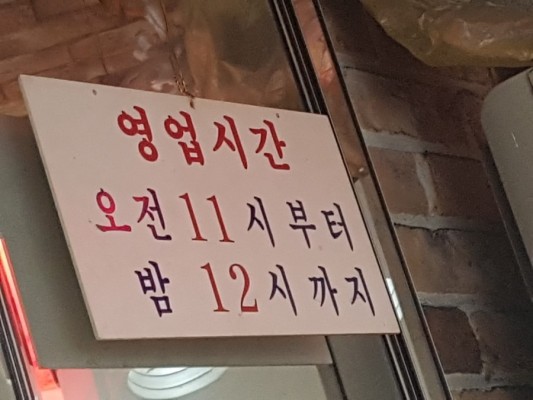 영업시간
오전 11시부터
밤 12시까지